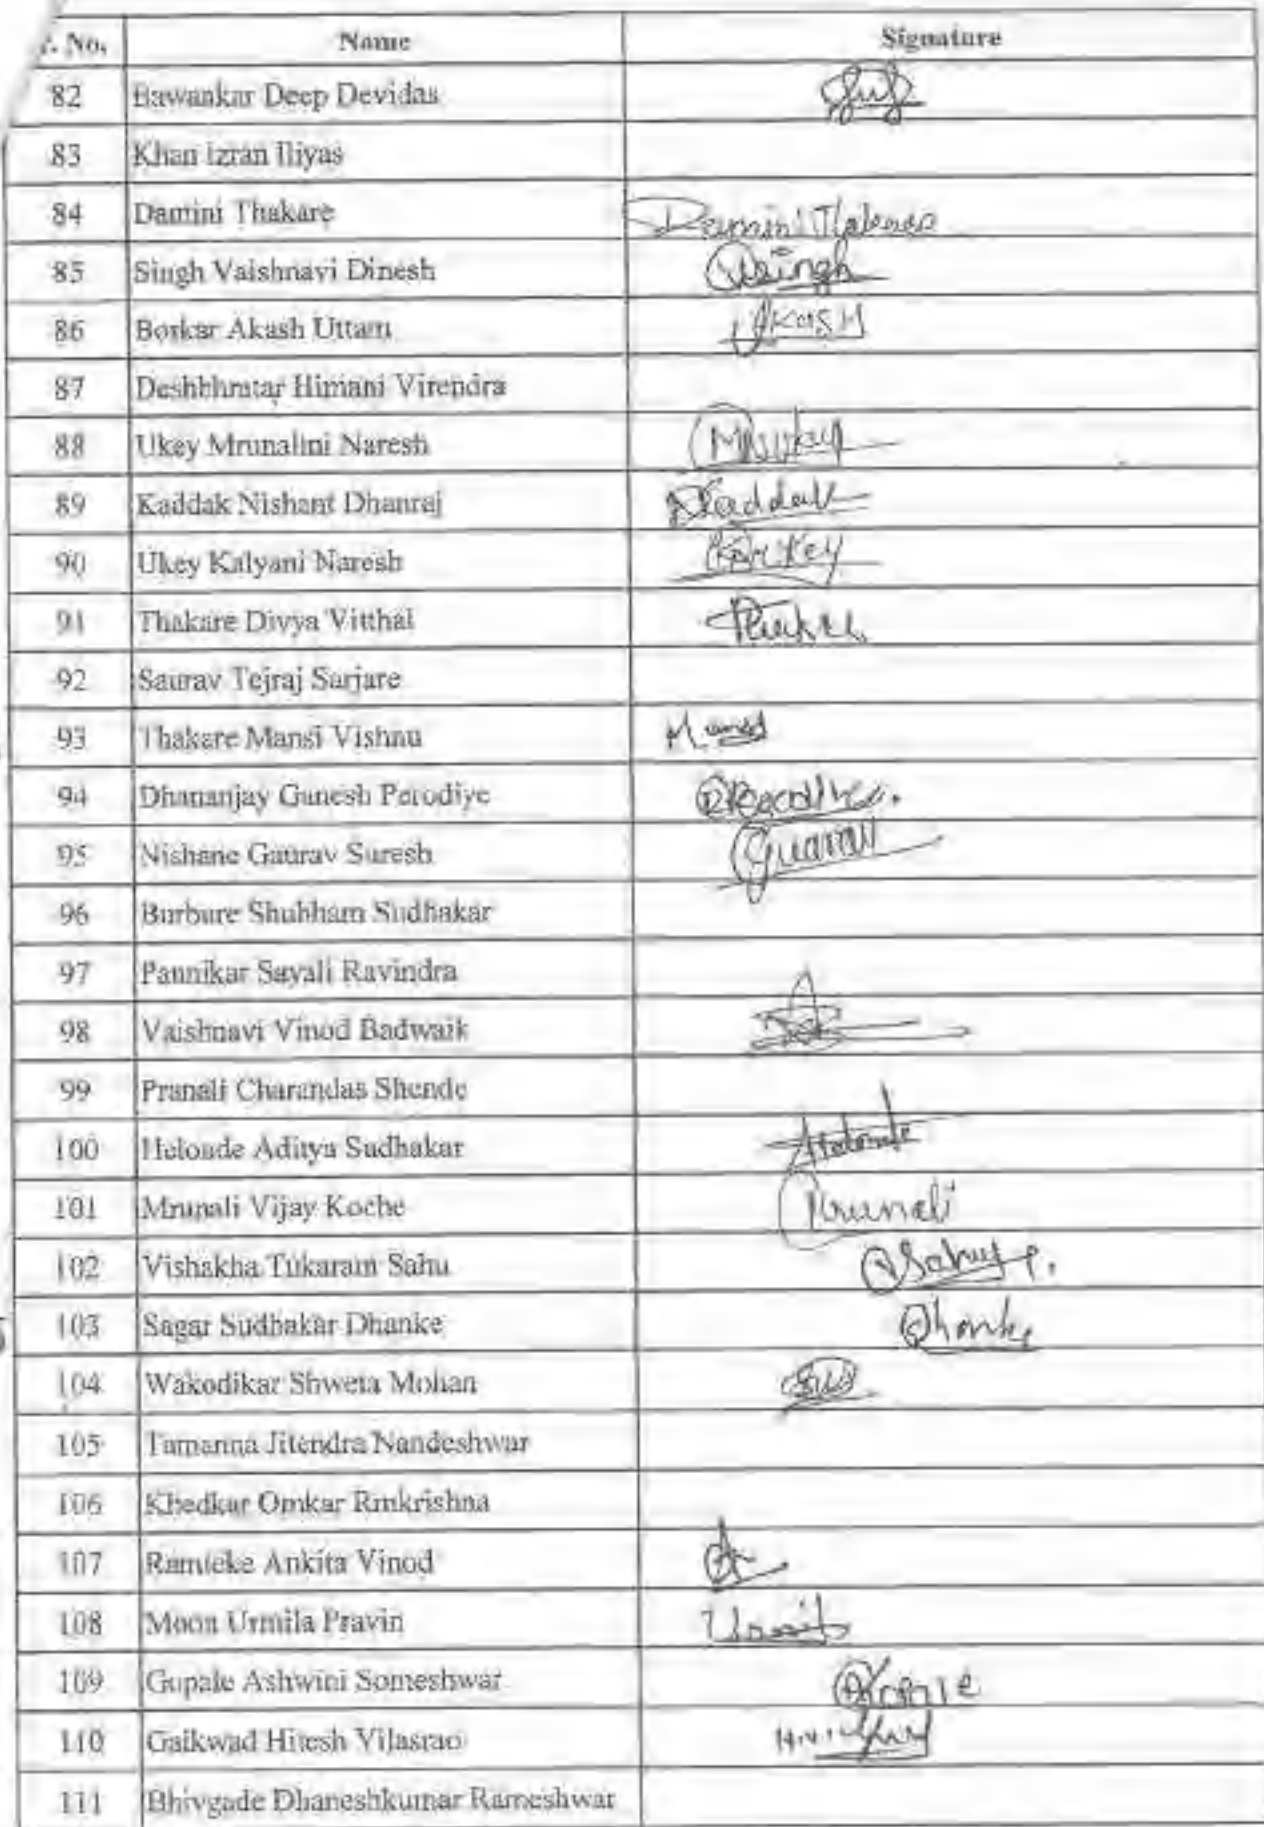 r. No. Name Signature
82 Bawankar Deep Devidas
83 Khan Izran Iliyas
84 Damini Thakare Damini Thakare
85 Singh Vaishnavi Dinesh Vsingh
86 Borkar Akash Uttam Akash
87 Deshbhratar Himani Virendra
88 Ukey Mrunalini Naresh
89 Kaddak Nishant Dhanraj Kaddak
90 Ukey Kalyani Naresh
91 Thakare Divya Vitthal
92 Saurav Tejraj Sarjare
93 Thakare Mansi Vishnu
94 Dhananjay Ganesh Perodiye
95 Nishane Gaurav Suresh
96 Burbure Shubham Sudhakar
97 Pannikar Sayali Ravindra
98 Vaishnavi Vinod Badwaik
99 Pranali Charandas Shende
100 Helonde Aditya Sudhakar
101 Mrunali Vijay Koche Mrunali
102 Vishakha Tukaram Sahu
103 Sagar Sudhakar Dhanke Dhanke
104 Wakodikar Shweta Mohan
105 Tamanna Jitendra Nandeshwar
106 Khedkar Omkar Rmkrishna
107 Ramteke Ankita Vinod
108 Moon Urmila Pravin
109 Gopale Ashwini Someshwar
110 Gaikwad Hitesh Vilasrao
111 Bhivgade Dhaneshkumar Rameshwar